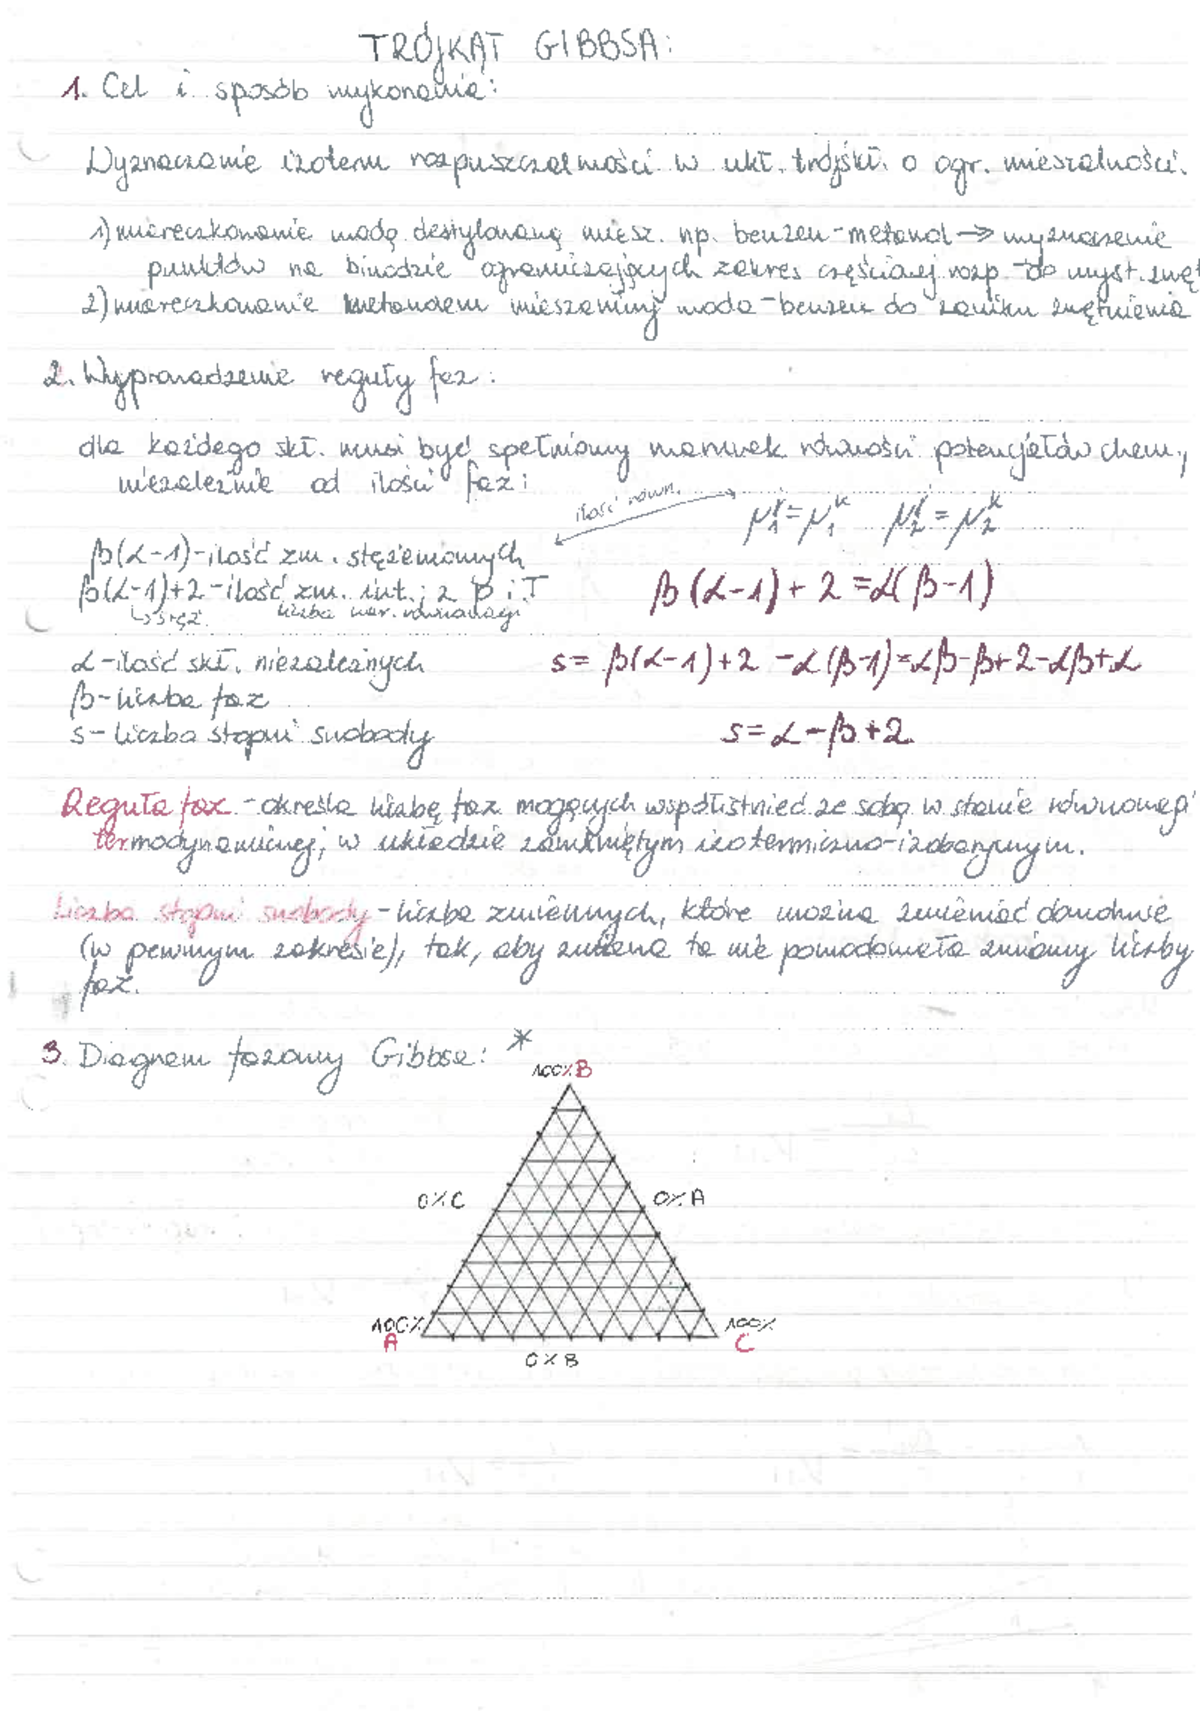 TRÓJKĄT GIBBSA:
1. Cel i sposób wykonania:
Wyznaczanie izoterm rozpuszczalności w ukł. trójskł. o ogr. mieszalności.
1) miareczkowanie wodą destylowaną miesz. np. benzen-metanol → wyznaczenie
punktów na binodzie ograniczających zakres częściowej rozp. do wyst. zmęt
2) miareczkowanie metanolem mieszaniny woda-benzen do zaniku zmętnienia
2. Wyprowadzenie reguły faz:
dla każdego skł. musi być spełniony warunek równości potencjałów chem.,
niezależnie od ilości faz:
ilość równ.
μ₁ᵞ=μ₁ᵏ μ₂ᵞ=μ₂ᵏ
β(α-1)-ilość zm. stężeniowych
β(α-1)+2-ilość zm. int.; z p i T
↳ stęż. liczba war. równowagi
β(α-1)+2=α(β-1)
α-ilość skł. niezależnych
s= β(α-1)+2-α(β-1)=αβ-β+2-αβ+α
β-liczba faz
s-liczba stopni swobody
s=α-β+2
Reguła faz - określa liczbę faz mogących współistnieć ze sobą w stanie równowagi
termodynamicznej, w układzie zamkniętym izotermiczno-izobarycznym.
Liczba stopni swobody - liczba zmiennych, które można zmieniać dowolnie
(w pewnym zakresie), tak, aby zmiana ta nie powodowała zmiany liczby
faz.
3. Diagram fazowy Gibbsa: *
100% B
0% C
0% A
100% A
100% C
0% B